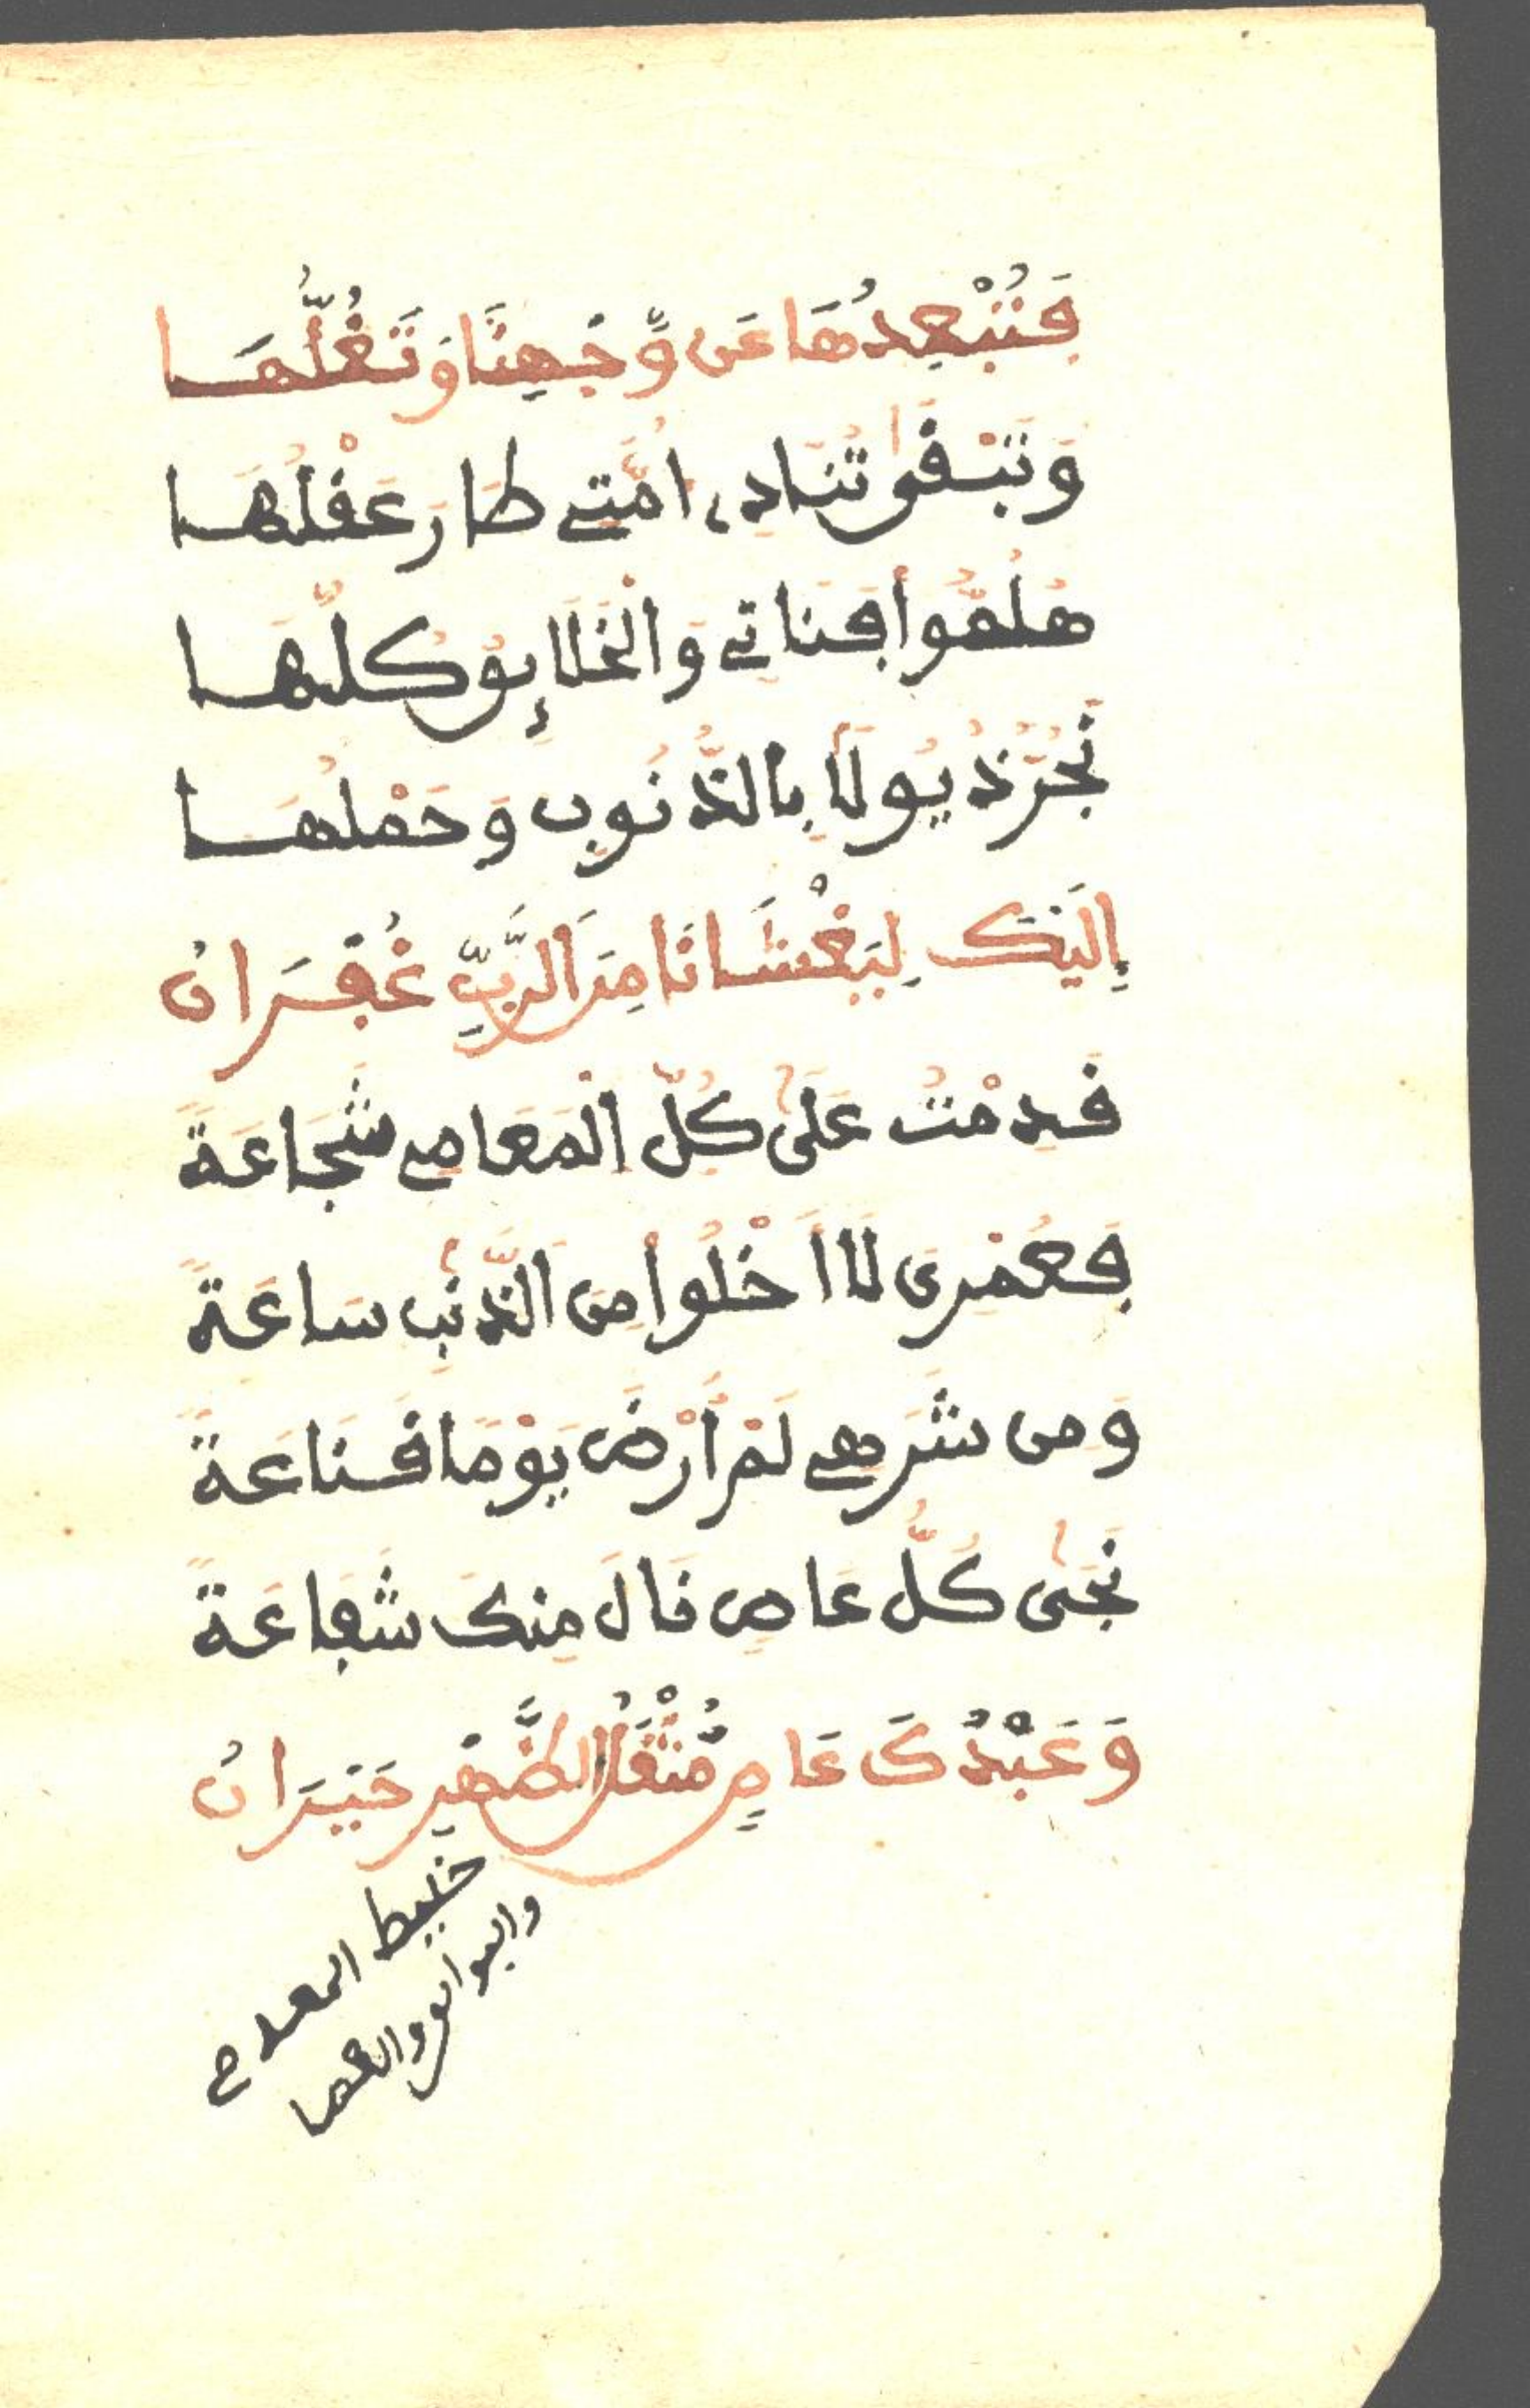 فَتُبْعِدُهَا عَن وَّجْهِنَا وَتَغُلُّهَا
وَتَبْقَى تُنَادِي أُمَّتِي طَارَ عَقْلُهَا
هَلُمُّوا فَنَاتِي وَالْخَلَائِقُ كُلُّهَا
نَجُرُّ ذُيُولًا بِالذُّنُوبِ وَحَمْلُهَا
إِلَيْكَ لِيَغْشَانَا مِنَ الرَّبِّ غُفْرَانُ
قَدِمْتُ عَلَى كُلِّ الْمَعَاصِي شَجَاعَةً
فَعُمْرِي لَا أَخْلُوا مِنَ الذَّنْبِ سَاعَةً
وَمِن شَرَهِي لَمْ أَرْضَ يَوْمًا قَنَاعَةً
نَجَى كُلُّ عَاصٍ نَالَ مِنكَ شَفَاعَةً
وَعَبْدُكَ عَاصٍ مُّثْقَلُ الظَّهْرِ حَيْرَانُ
خليط
والبوا